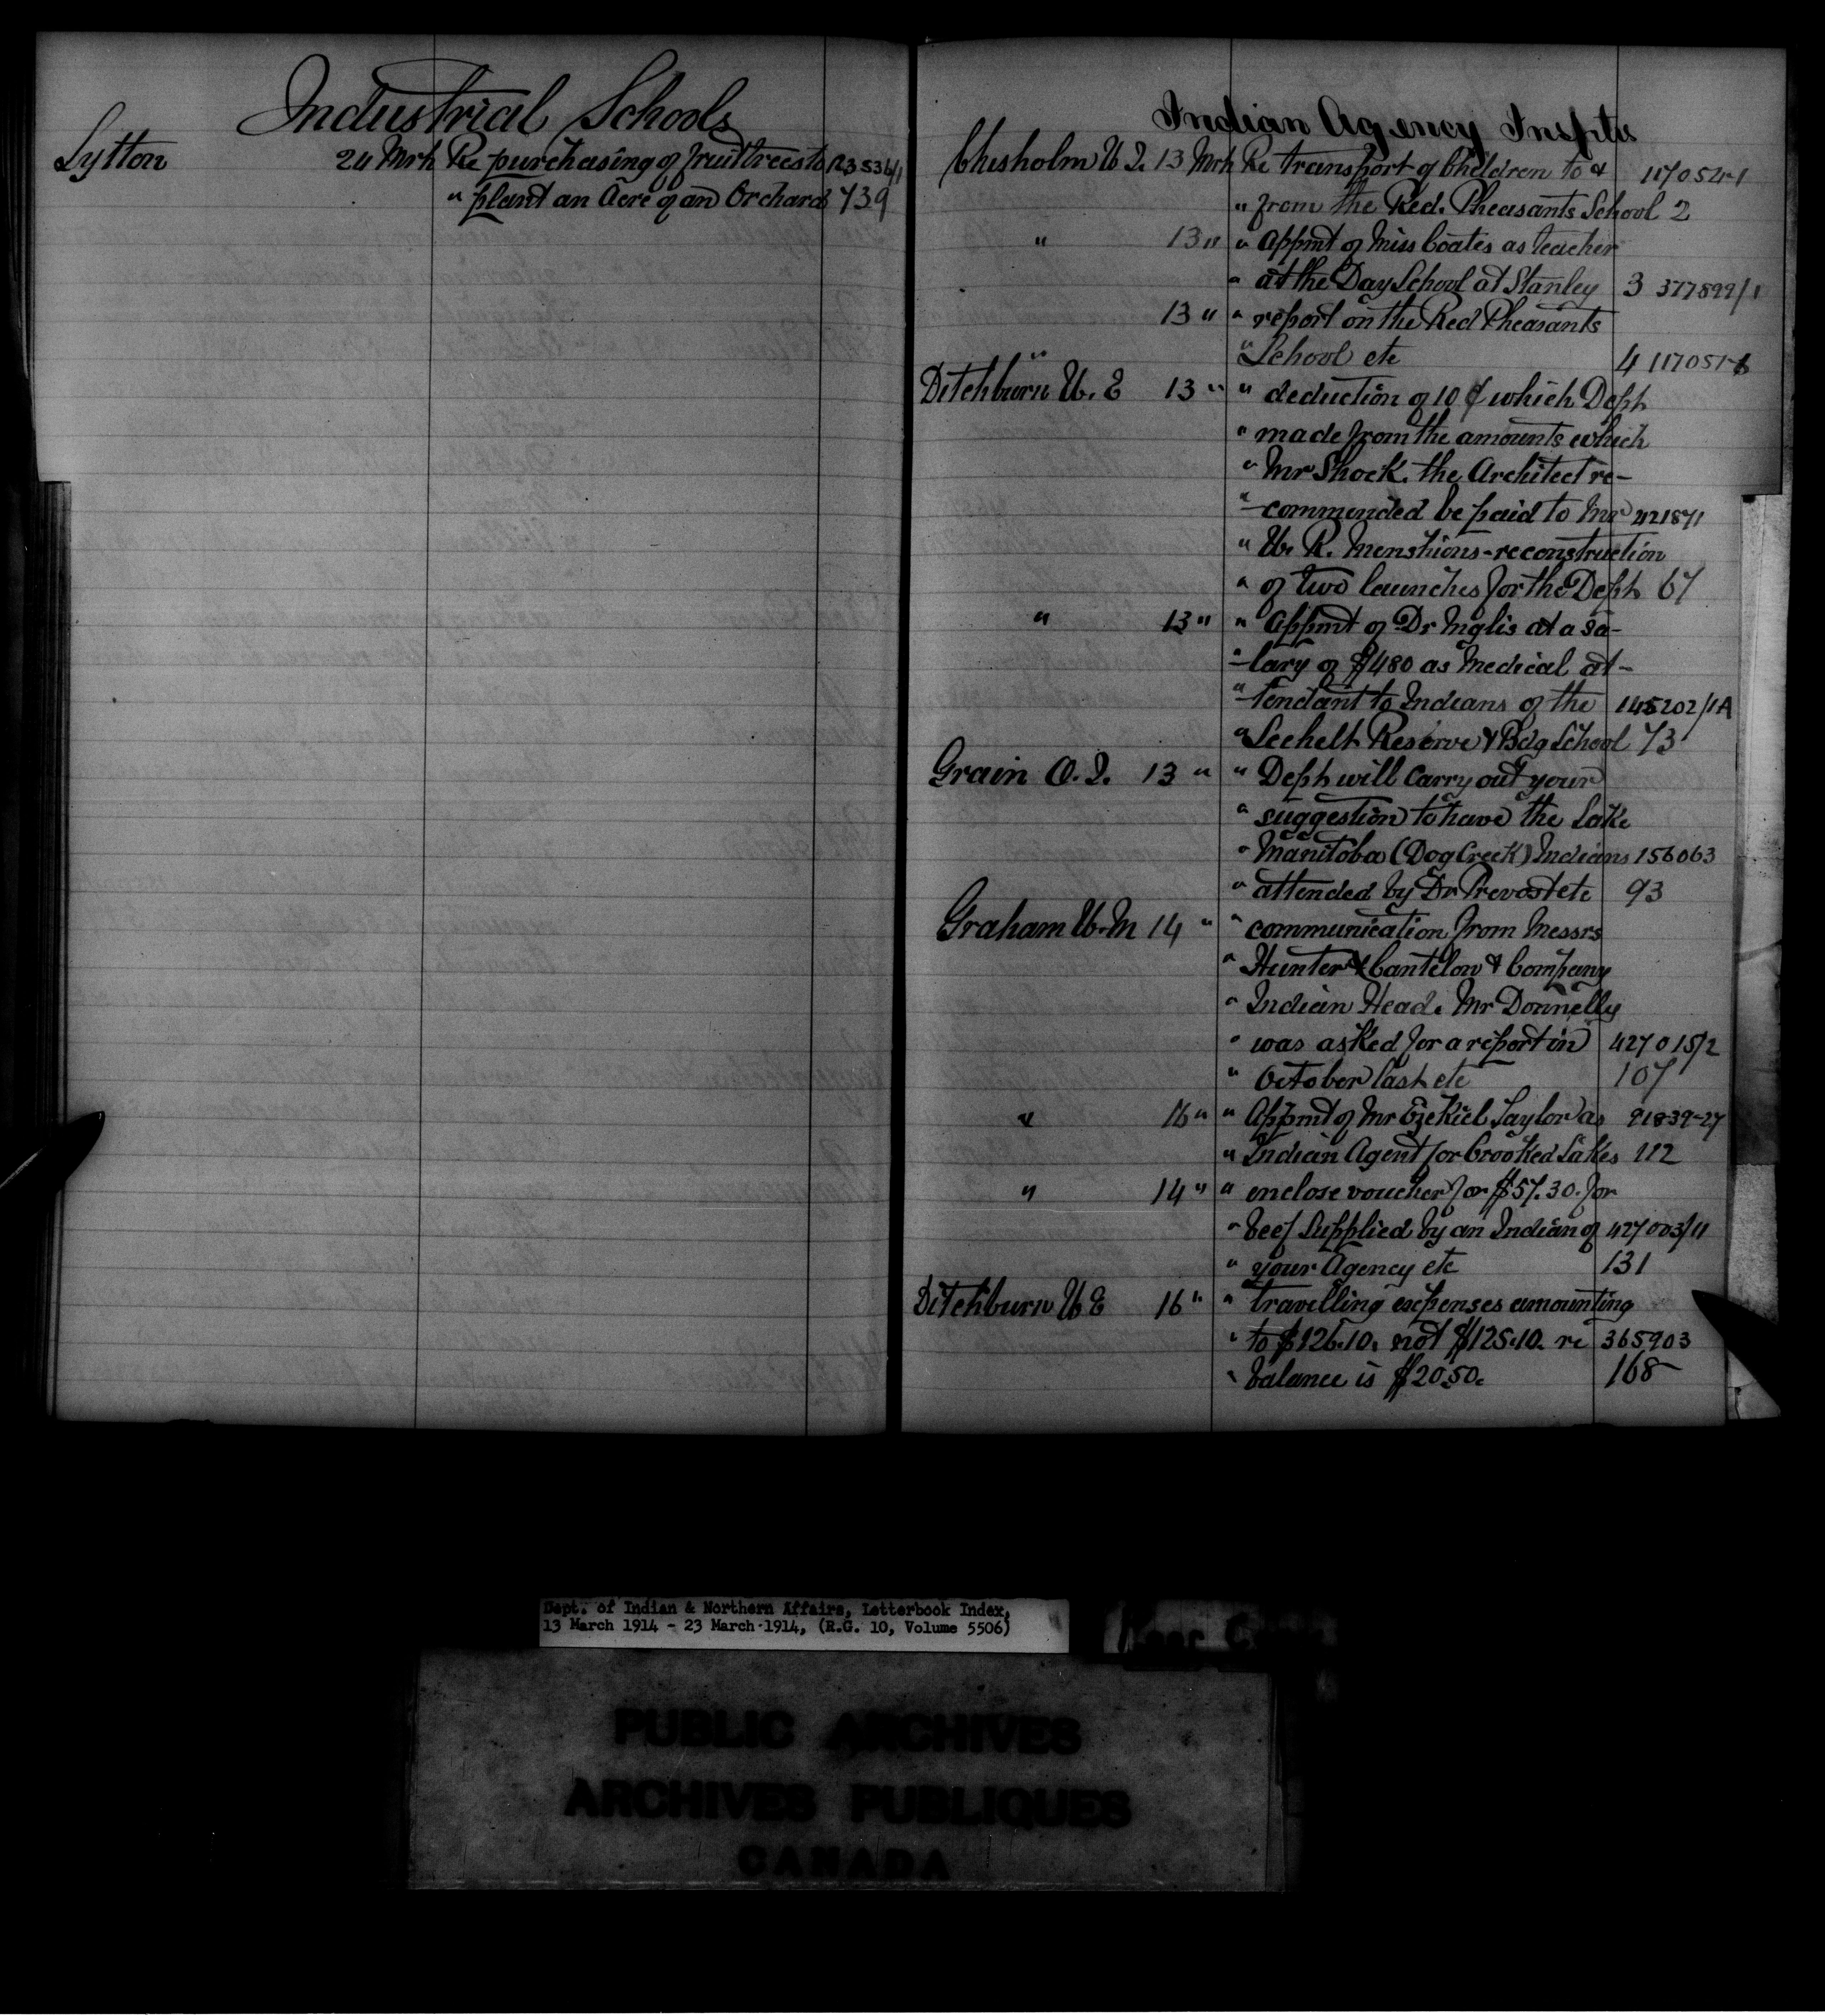 Industrial Schools
Lytton 24 Mrh Re purchasing of fruit trees to
" plant an Acre of an Orchard 739
Indian Agency Inspts
Chisholm W J. 13 Mrh Re transport of Children to & 117052-1
" from the Red. Pheasants School 2
" 13 " " Appmt of Miss Coates as teacher
" at the Day School at Stanley 3 377899/1
13 " " report on the Red Pheasants
" School etc 4 117051-
Ditchburn W. E 13 " " deduction of 10 ¢ which Dept
" made from the amounts which
" Mr Shock. the Architect re-
" -commended be paid to Mr 421871
" W. R. Menshions - reconstruction
" of two launches for the Dept 67
" 13 " " Appmt of Dr Inglis at a sa-
" -lary of $480 as Medical at-
" -tendant to Indians of the 145202/1A
" Sechelt Reserve & Bdg School 73
Grain O. I. 13 " " Dept will Carry out your
" suggestion to have the Lake
" Manitoba (Dog Creek) Indians 156063
" attended by Dr Prevost etc 93
Graham W. M 14 " " communication from Messrs
" Hunter & Cantelow & Company
" Indian Head. Mr Donnelly
" was asked for a report in 427015/2
" October last etc 107
" 16 " " Appmt of Mr Ezekiel Taylor as 91839-27
" Indian Agent for Crooked Lakes 112
" 14 " " enclose voucher for $57.30. for
" beef Supplied by an Indian of 427003/11
" your Agency etc 131
Ditchburn W E 16 " " travelling expenses amounting
" to $126.10. not $125.10. re 365903
" balance is $20.50. 168
Dept. of Indian & Northern Affairs, Letterbook Index,
13 March 1914 - 23 March 1914, (R.G. 10, Volume 5506)
PUBLIC ARCHIVES
ARCHIVES PUBLIQUES
CANADA